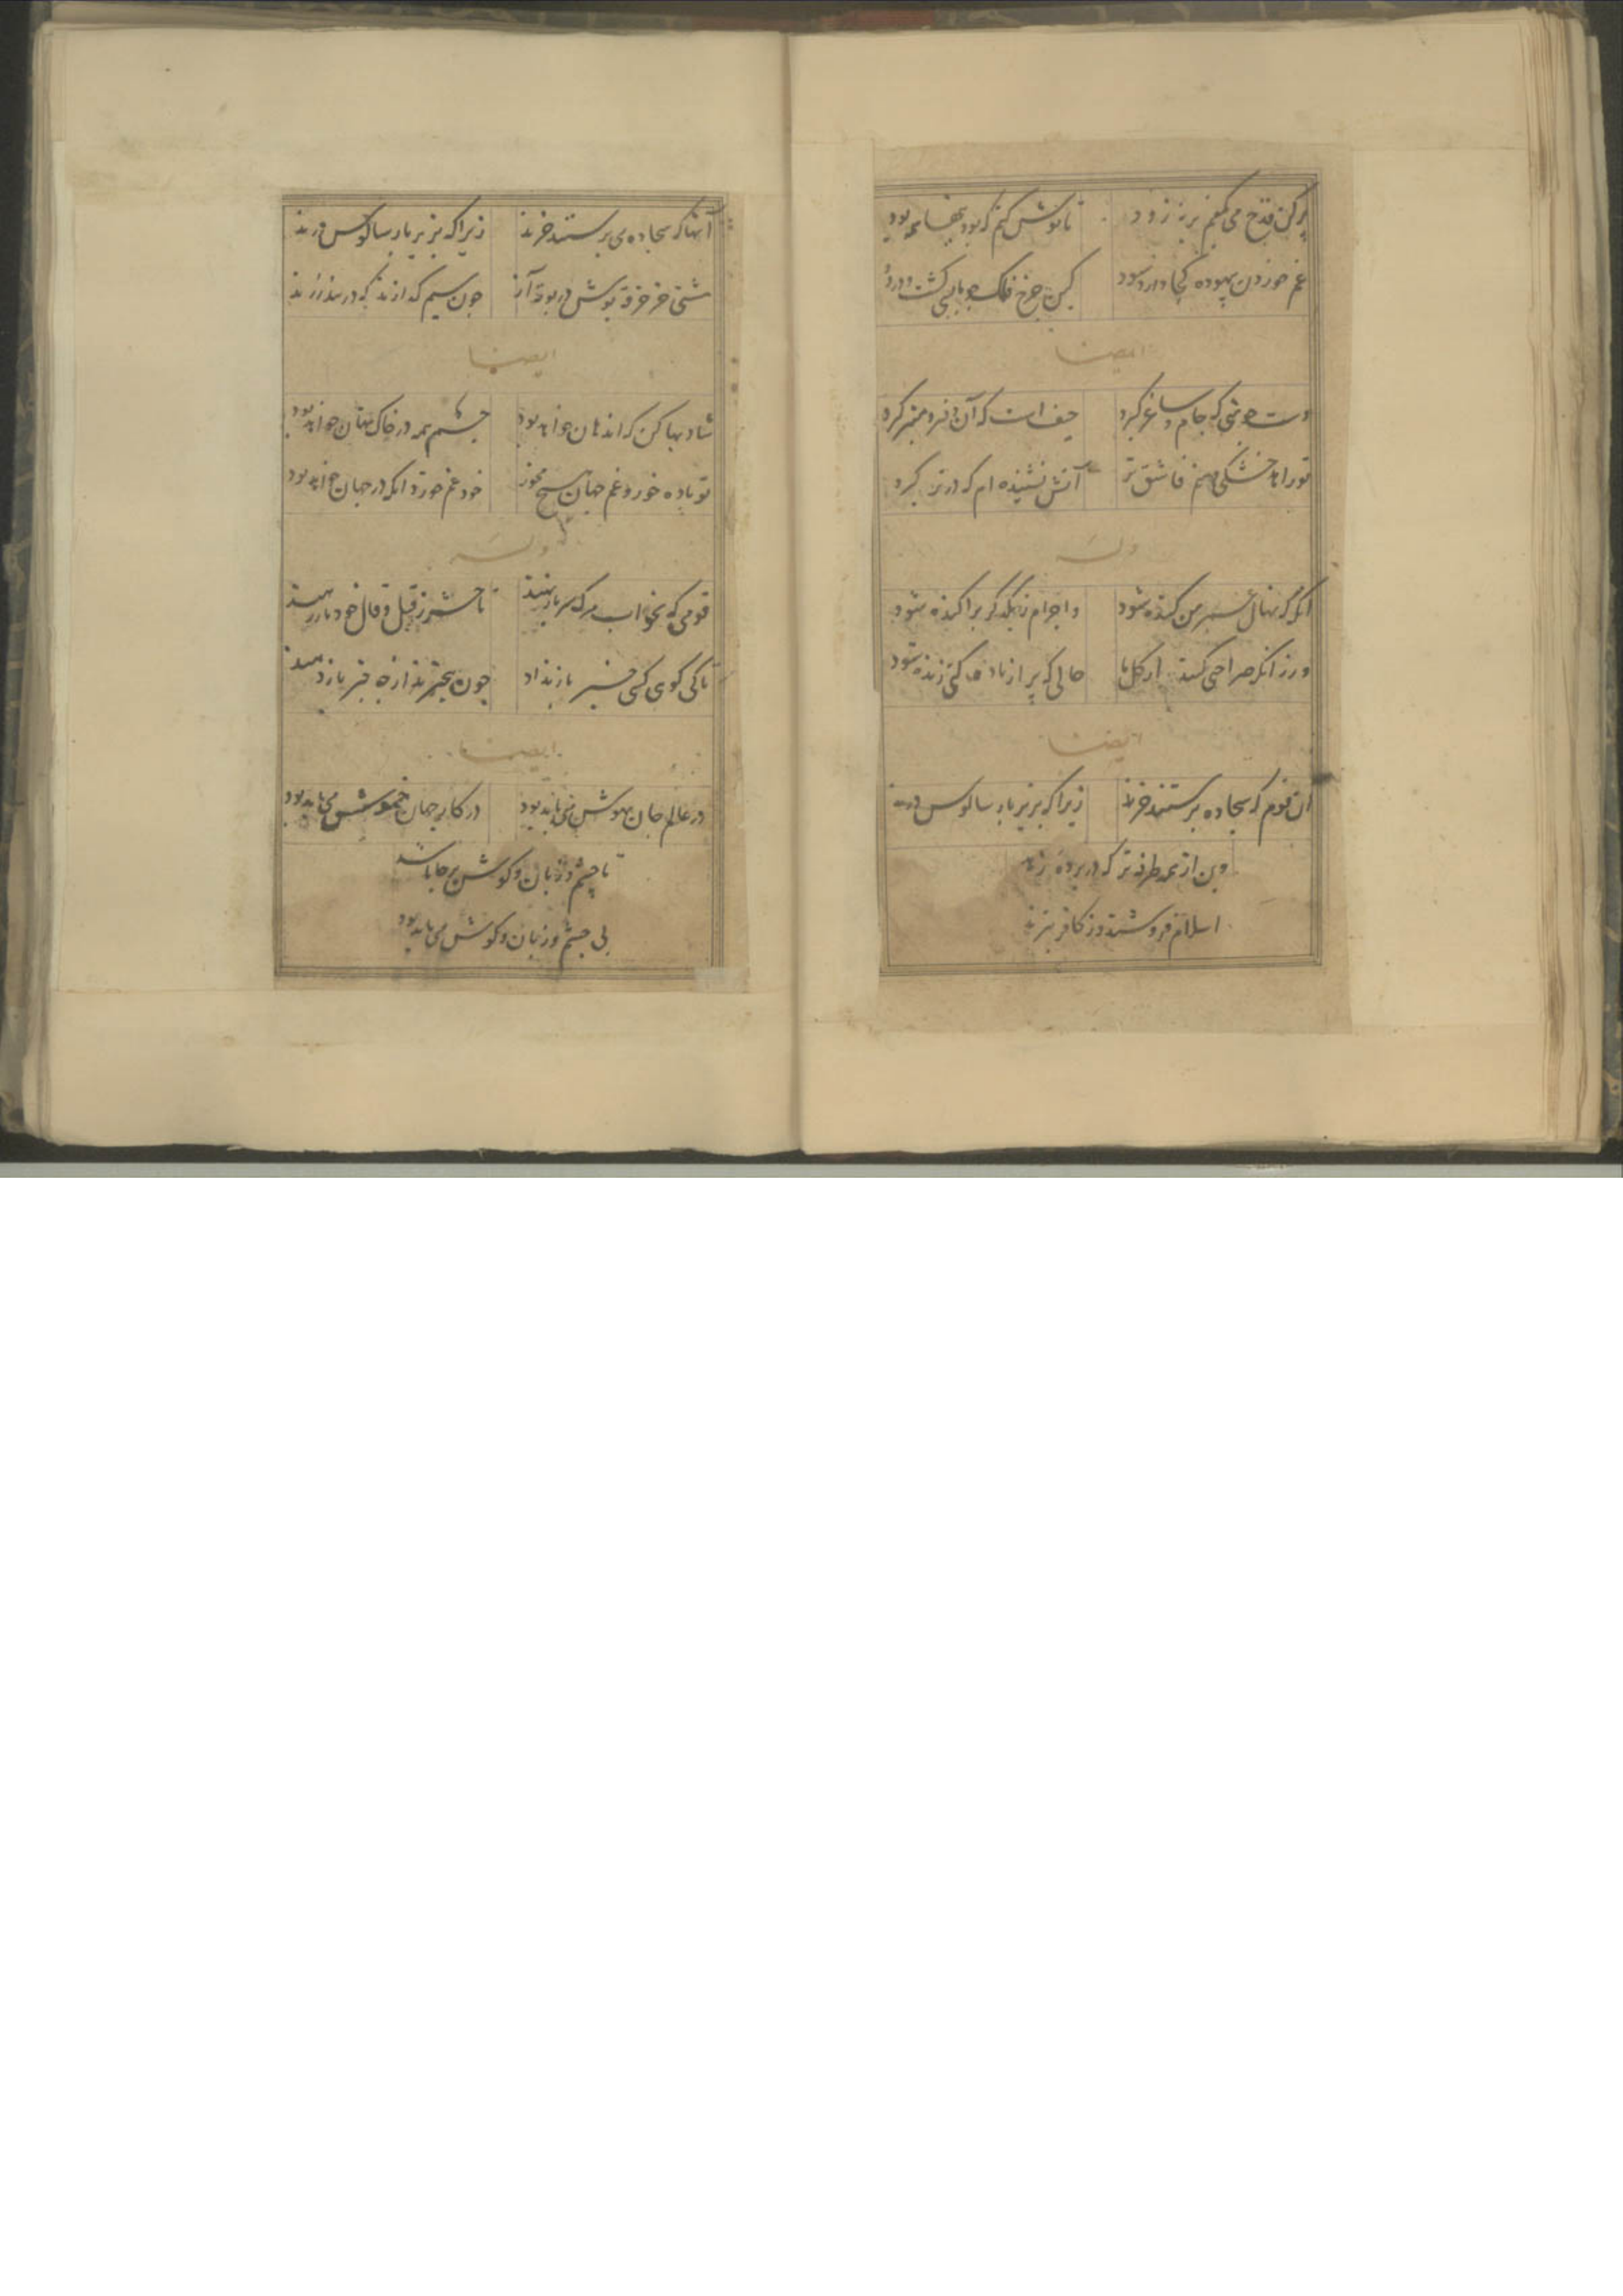 پر کن قدح می بکفم بر نه زود
تا نوش کنم که بود بیغایله بود
غم خوردن بیهوده کجا دارد سود
کین چرخ فلک چو ما بسی کشت و درود
ایضا
دست چو منی که جام و ساغر گیرد
حیف است که آن دفتر و منبر گیرد
تو زاهد خشکی و منم فاسق تر
آتش نشنیده ام که در تر گیرد
وله
آنگه که نهال عمر من کنده شود
و اجرام ز یکدگر پراکنده شود
ور زانکه صراحی کنند از گل ما
حالی که پر از باده کنی زنده شود
ایضا
آن قوم که سجاده پرستند خرند
زیرا که بزیر بار سالوس درند
وین از همه طرفه تر که در پرده زهد
اسلام فروشند و ز کافر بترند
آنها که سجاده می پرستند خرند
زیرا که بزیر بار سالوس درند
مشتی خر خرقه پوش در بوته آز
چون سیم گدازند که در بند زرند
ایضا
شادیها کن که اندهان خواهد بود
چشم همه در خاک نهان خواهد بود
تو باده خور و غم جهان هیچ مخور
خود غم خورد آنکه در جهان خواهد بود
وله
قومی که بخواب مرگ سر باز نهند
تا حشر ز قیل و قال خود باز رهند
تا کی گوئی کسی خبر باز نداد
چون بیخبرند از چه خبر باز دهند
ایضا
در عالم جان بهوش می باید بود
در کار جهان خموش می باید بود
تا چشم و زبان و گوش بر جا باشد
بی چشم و زبان و گوش می باید بود